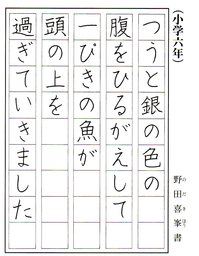 (小学六年)
つうと銀の色の
腹をひるがえして
一ぴきの魚が
頭の上を
過ぎていきました
野田喜峯書